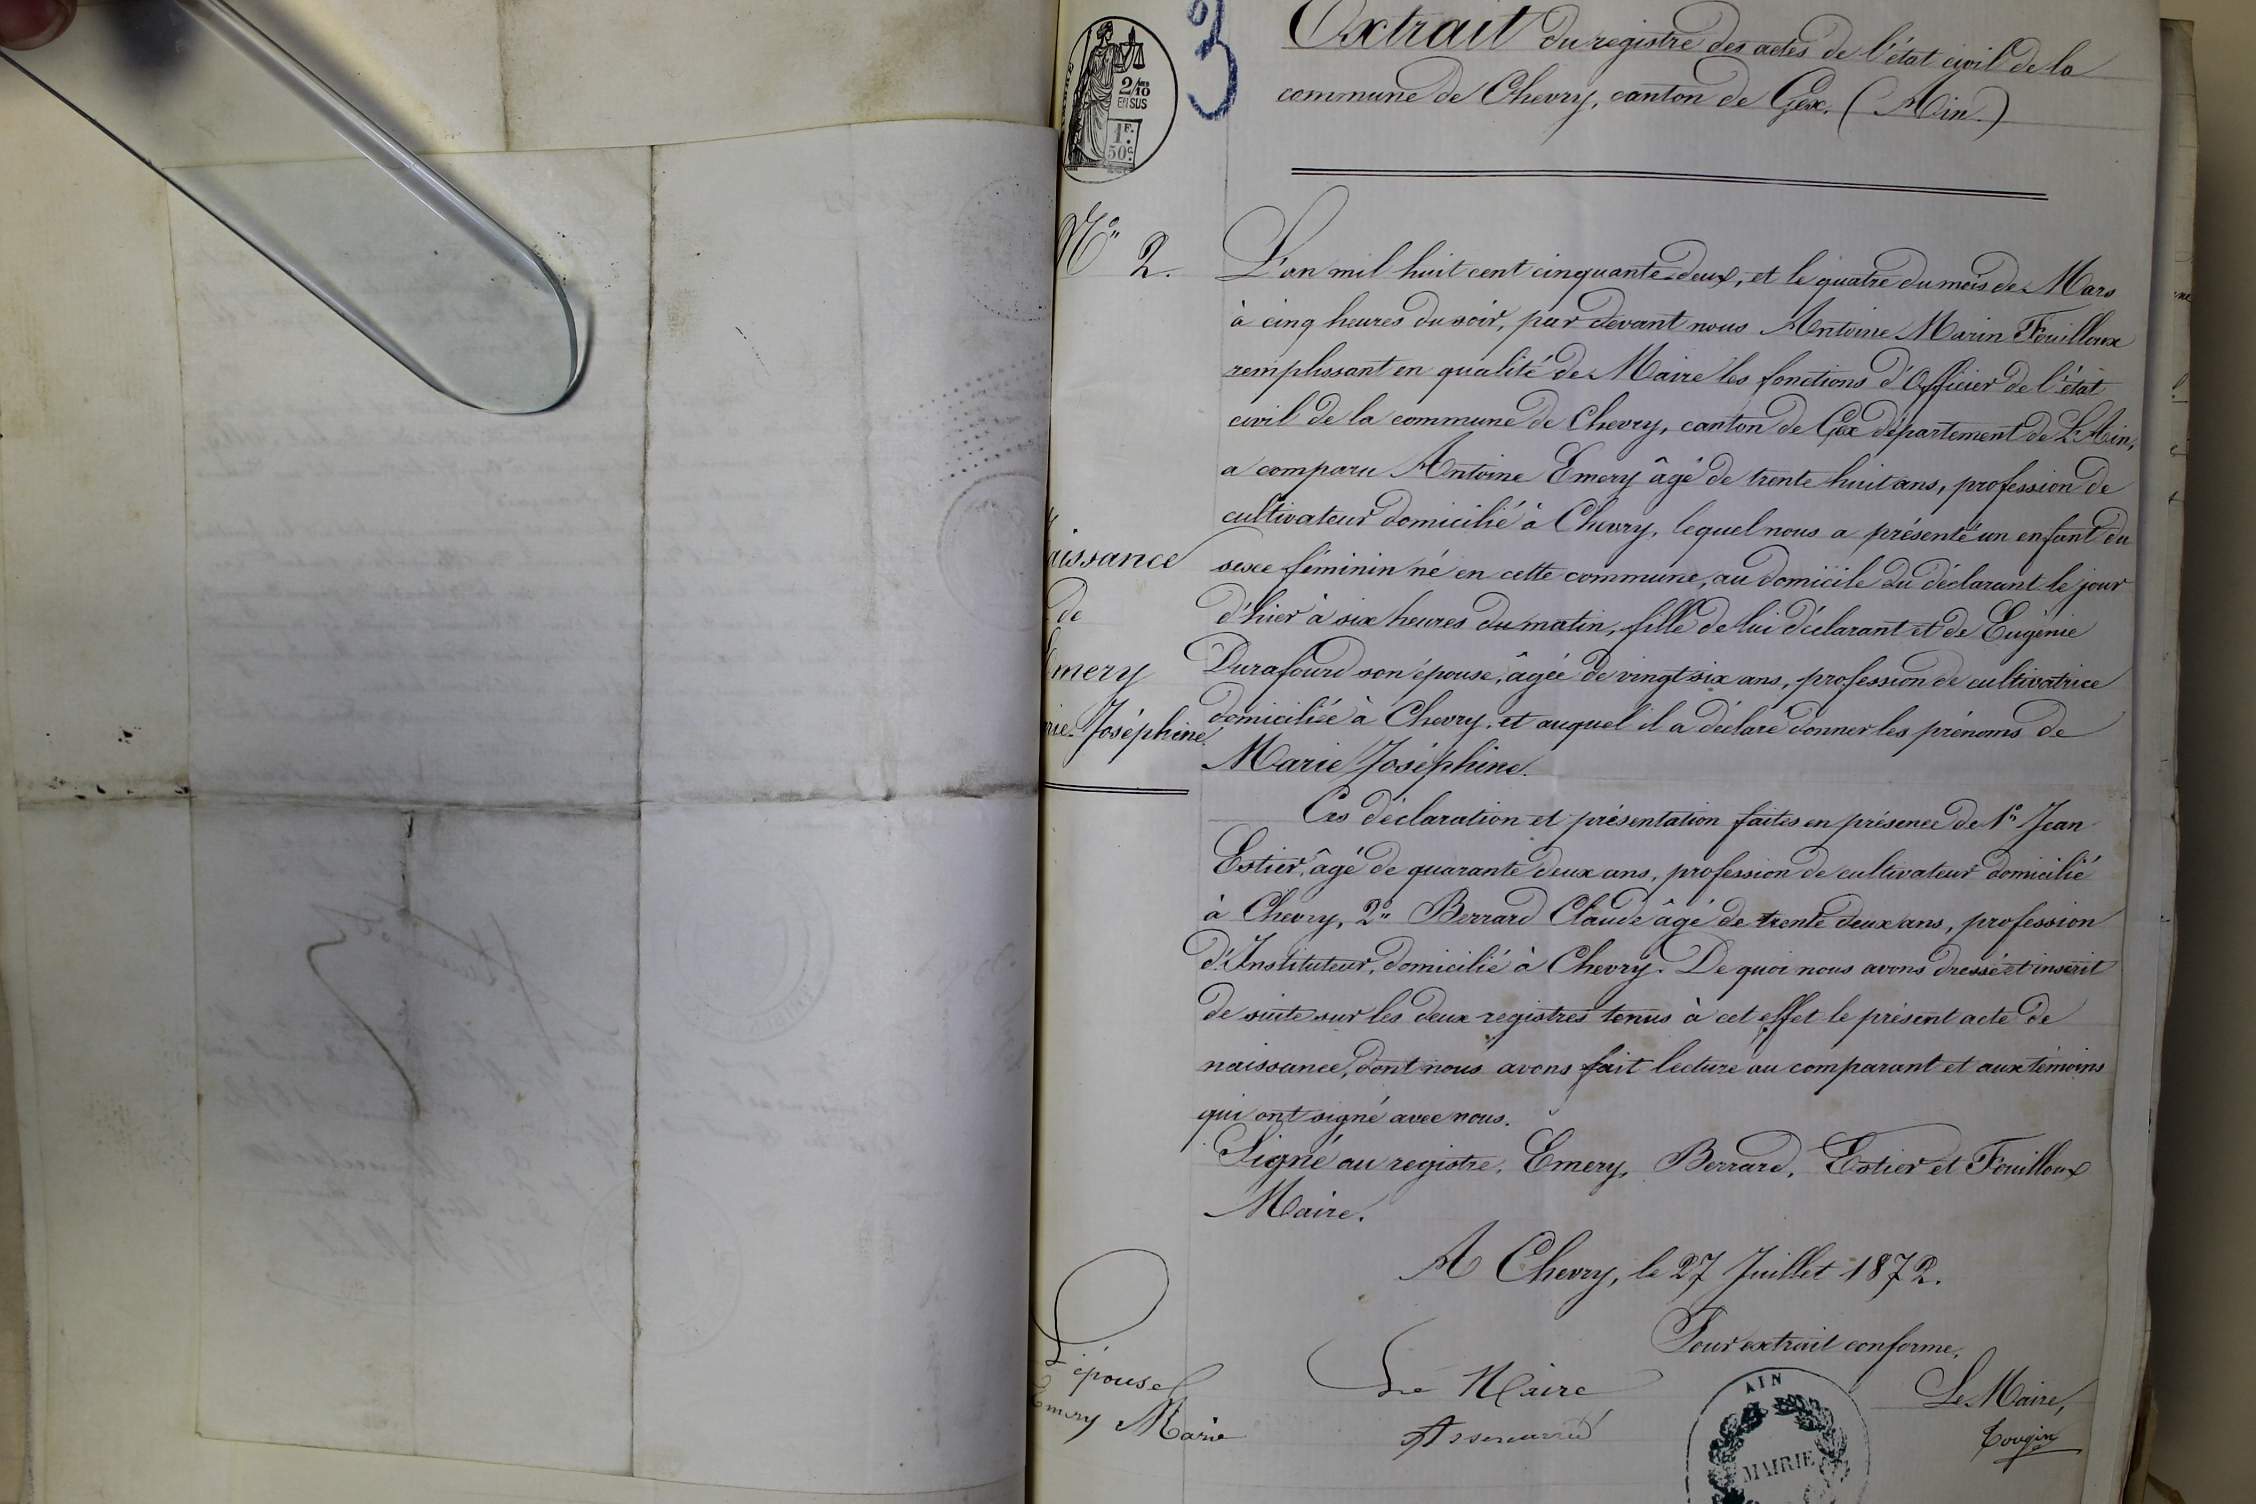 3
2/10
EN SUS
1F.
50c.
Extrait du registre des actes de l'état civil de la
commune de Chevry, canton de Gex. (Ain.)
N° 2.
L'an mil huit cent cinquante-deux, et le quatre du mois de Mars
à cinq heures du soir, par devant nous Antoine Marin Fouilloux
remplissant en qualité de Maire les fonctions d'Officier de l'état
civil de la commune de Chevry, canton de Gex département de L'Ain,
a comparu Antoine Emery âgé de trente huit ans, profession de
cultivateur domicilié à Chevry, lequel nous a présenté un enfant du
sexe féminin né en cette commune, au domicile du déclarant le jour
d'hier à six heures du matin, fille de lui déclarant et de Eugénie
Durafourd son épouse, âgée de vingt six ans, profession de cultivatrice
domiciliée à Chevry, et auquel il a déclaré donner les prénoms de
Marie Joséphine.
aissance
de
Emery
rie Joséphine.
Ces déclaration et présentation faites en présence de 1° Jean
Estier, âgé de quarante deux ans, profession de cultivateur domicilié
à Chevry, 2° Berrard Claude âgé de trente deux ans, profession
d'Instituteur, domicilié à Chevry. De quoi nous avons dressé et inscrit
de suite sur les deux registres tenus à cet effet le présent acte de
naissance, dont nous avons fait lecture au comparant et aux témoins
qui ont signé avec nous.
Signé au registre, Emery, Berrard, Estier et Fouilloux
Maire.
A Chevry, le 27 Juillet 1872.
Pour extrait conforme,
L'épouse
Emery Marie
Le Maire
Le Maire,
Tougin
AIN
MAIRIE